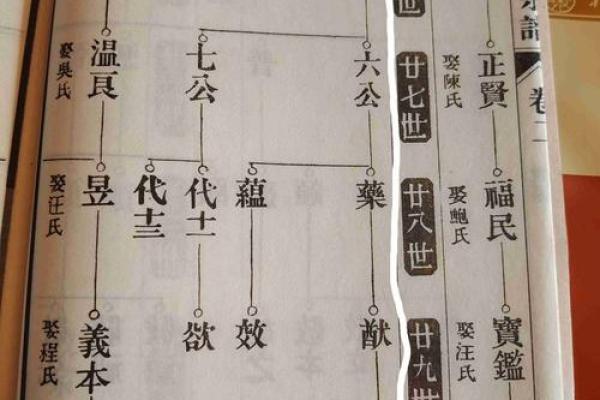 譜
卷二
世
廿七世
正賢
娶陳氏
六公
七公
温良
娶吳氏
廿八世
福民
娶鮑氏
藥
蘊
代十一
代十三
昱
娶汪氏
廿九世
寶鑑
娶汪氏
猷
效
欲
義本
娶程氏